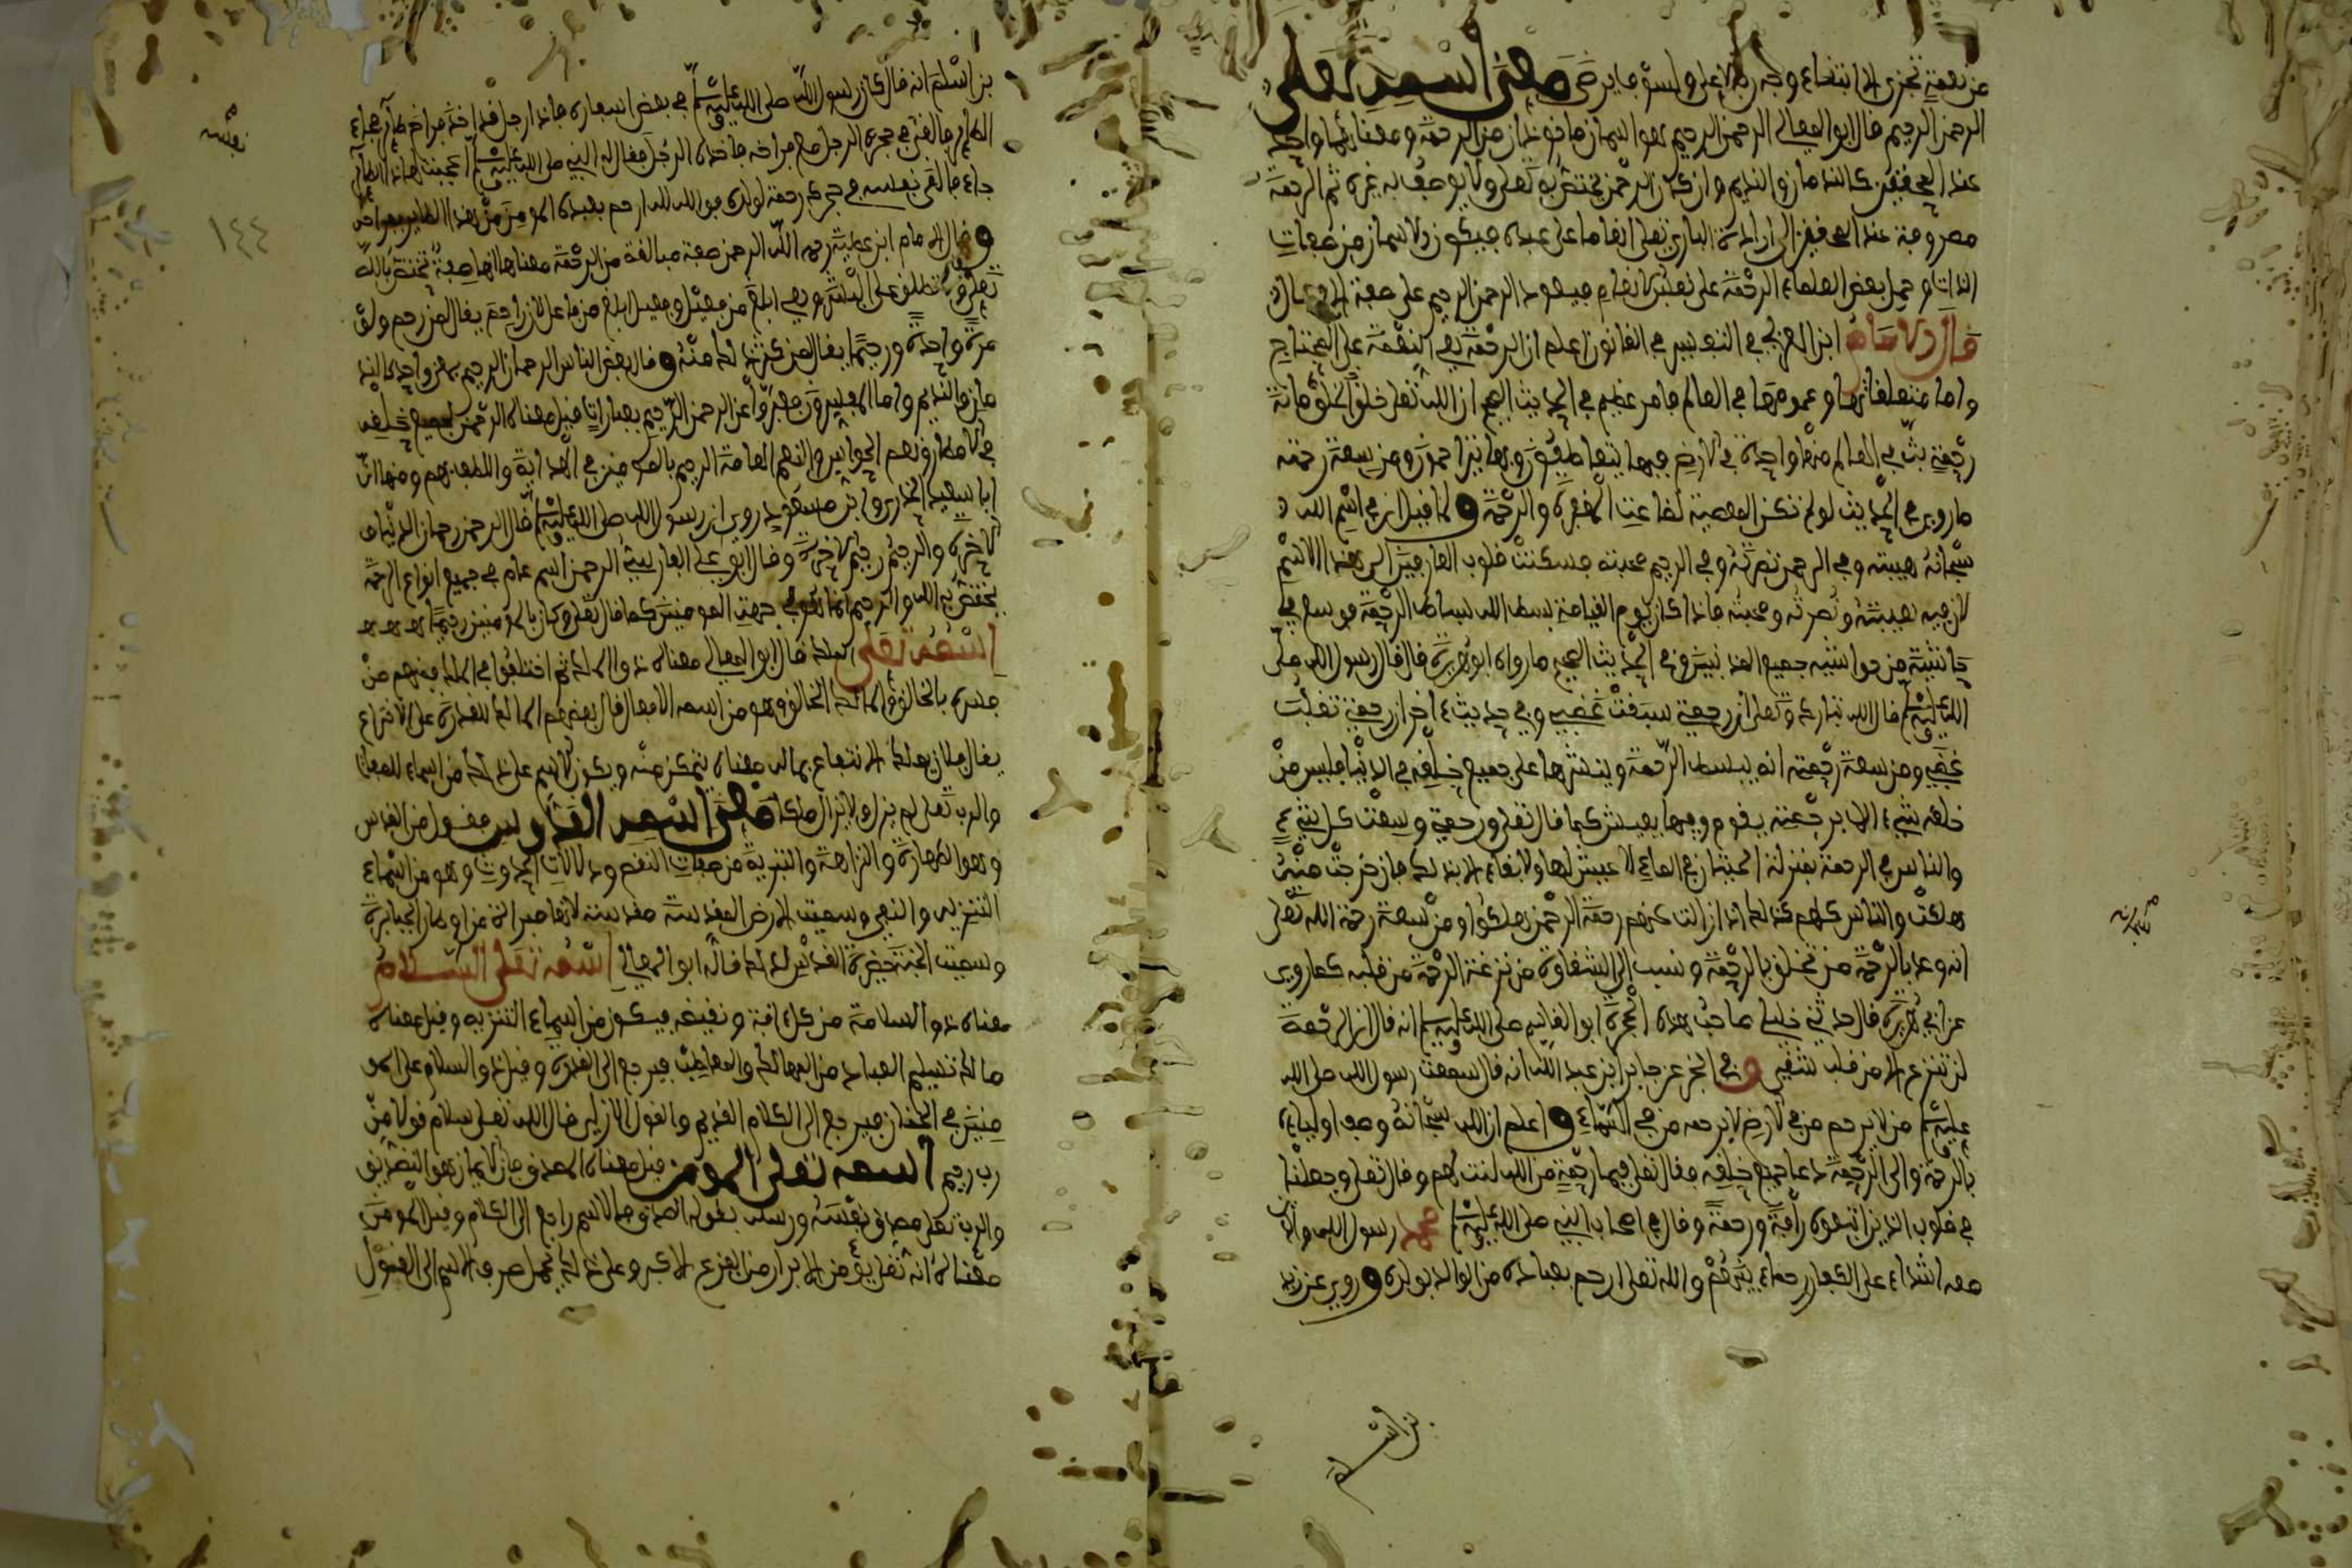 من نعمة تجزى إلا ابتغاء وجه ربه الأعلى ولسوف يرضى معنى اسمه تعلى
الرحمن الرحيم قال ابو المعالى الرحمن الرحيم هما اسمان مأخوذان من الرحمة ومعناهما واحد
عند المحققين كالندمان والنديم وان كان الرحمن يختص به تعلى ولا يوصف به غيره ثم الرحمة
مصروفة عند المحققين الى ارادة البارى تعلى انعاما على عبده فيكون الاسمان من صفات
الذات وحمل بعض العلماء الرحمة على نفس الانعام فيعود الرحمن الرحيم على صفة الافعال
قال الامام ابن العربى فى التفسير فى القانون اعلم ان الرحمة هى النعمة على المحتاج
واما متعلقاتها وعمومها فى العالم فامر عظيم فى الحديث الصحيح ان الله تعلى خلق الخلق مائة
رحمة بث فى العالم منها واحدة فى الارض فيها يتعاطفون وبها يتراحمون ومن سعة رحمته
ما روى فى الحديث لو لم تكن المعصية لضاعت المغفرة والرحمة و لما قيل ان فى اسم الله
سبحانه هيبته وفى الرحمن نصرته وفى الرحيم محبته فسكنت قلوب العارفين الى هذا الاسم
لان فيه هيبته ونصرته ومحبته فاذا كان يوم القيامة بسط الله بساط الرحمة فوسع فى
حاشية من حواشيه جميع المذنبين وفى الحديث الصحيح ما رواه ابو هريرة قال قال رسول الله صلى
الله عليه وسلم قال الله تبارك وتعلى ان رحمتى سبقت غضبى وفى حديث ءاخر ان رحمتى تغلب
غضبى ومن سعة رحمته انه يبسط الرحمة وينشرها على جميع خلقه فى الدنيا فليس من
خلقه شىء الا برحمته يقوم وبها يعيش كما قال تعلى ورحمتى وسعت كل شىء
والناس فى الرحمة بمنزلة الحيتان فى الماء لا عيش لها ولا بقاء الا بذلك فان خرجت منه
هلكت والناس كلهم كذلك اذا زالت عنهم رحمة الرحمن هلكوا ومن سعة رحمة الله تعلى
انه وعد بالرحمة من تخلق بالرحمة ونسب الى الشقاوة من نزعت الرحمة من قلبه كما روى
عن ابى هريرة قال حدثنى خليلى صاحب هذه الحجرة ابو القاسم صلى الله عليه وسلم انه قال ان الرحمة
لن تنزع الا من قلب شقى وفى الخبر عن جابر ابن عبد الله انه قال سمعت رسول الله صلى الله
عليه وسلم من لا يرحم من فى الارض لا يرحمه من فى السماء واعلم ان الله سبحانه وصف اولياءه
بالرحمة والى الرحمة دعا جميع خلقه فقال تعلى فبما رحمة من الله لنت لهم وقال تعلى وجعلنا
فى قلوب الذين اتبعوه رأفة ورحمة وقال فى اصحاب النبى صلى الله عليه وسلم محمد رسول الله والذين
معه اشداء على الكفار رحماء بينهم والله تعلى ارحم بعباده من الوالد بولده وروى عن زيد
بن اسلم
بن اسلم انه قال كان رسول الله صلى الله عليه وسلم فى بعض اسفاره فاذا رجل قد اخذ فراخ طائر فجاء
الطائر فالقى فى حجر الرجل مع فراخه فاخذه الرجل فقال له النبى صلى الله عليه وسلم اعجبت لهذا الطائر
جاء فالقى نفسه فى حجرك رحمة لولده فوالله لله ارحم بعبده المومن من هذا الطائر بفراخه
وقال الامام ابن عطية رحمه الله الرحمن صفة مبالغة من الرحمة معناها انها صفة تختص بالله
تعلى ولا تطلق على البشر وهى ابلغ من فعيل وفعيل ابلغ من فاعل لان راحم يقال لمن رحم ولو
مرة واحدة ورحيما يقال لمن كثر ذلك منه وقال بعض الناس الرحمان الرحيم بمعنى واحد كالند
مان والنديم واما المفسرون فعبروا عن الرحمن الرحيم بعبارات فقيل معناه الرحمن بجميع خلقه
فى الامطار ونعم الحواس والنعم العامة الرحيم بالمومنين فى الهداية واللطف بهم ومنها ان
ابا سعيد الخدرى وابن مسعود روى ان رسول الله صلى الله عليه وسلم قال الرحمن رحمان الدنيا و
الاخرة والرحيم رحيم الاخرة وقال ابو على الفارسى الرحمن اسم عام فى جميع انواع الرحمة
يختص به الله والرحيم انما هو فى جهة المومنين كما قال تعلى وكان بالمومنين رحيما
اسمه تعلى الملك قال ابو المعالى معناه ذو الملك ثم اختلفوا فى الملك فمنهم من
فسره بالخلق والملك الخالق وهو من اسماء الافعال وقال بعضهم الملك القدرة على الاختراع
يقال فلان يملك الانتفاع بماله معناه يتمكن منه ويكون الاسم على ذلك من اسماء الصفات
والرب تعلى لم يزل ولا يزال ملكا معنى اسمه القدوس فعول من القدس
وهو الطهارة والنزاهة والتنزيه من صفات النقص ودلالات الحدوث وهو من اسماء
التنزيه والنفى وسميت الارض المقدسة مقدسة لانها
وسميت الجنة حضرة القدس لذلك قاله ابو المعالى اسمه تعلى السلام
معناه ذو السلامة من كل ءافة ونقيصة فيكون من اسماء التنزيه وقيل معناه
مالك تسليم العباد من المهالك والمعاطب فيرجع الى القدرة وقيل ذو السلام على المو
منين فى الجنان فيرجع الى الكلام القديم والقول الازلى قال الله تعلى سلام قولا من
رب رحيم اسمه تعلى المومن قيل معناه المصدق فان الايمان هو التصديق
والرب تعلى مصدق نفسه ورسله بقوله الصدق فالاسم راجع الى الكلام وقيل المومن
معناه انه تعلى يؤمن الابرار من الفزع الاكبر وعلى ذلك يحمل صرف الاسم الى القول
١٤٤